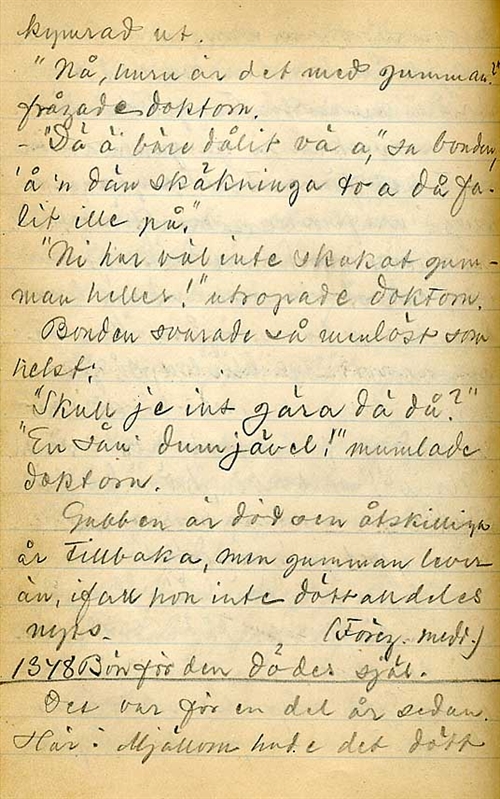 kymrad ut.
"Nå, huru är det med gumman?"
frågade doktorn.
- "Dä ä' bare dålit vä a," sa bonden,
'å 'n dän skåkninga to a då fa-
lit ille på."
"Ni har väl inte skakat gum-
man heller!" utropade doktorn.
Bonden svarade så menlöst som
helst:
"Skull je int gära dä då?"
"En sån dum jävel!" mumlade
doktorn.
Gubben är död sen åtskilliga
år tillbaka, men gumman lever
än, ifall hon inte dött alldeles
nyss. (Föreg. medd.)
1378 Bön för den dödes själ.
Det var för en del år sedan.
Här i Mjällom hade det dött